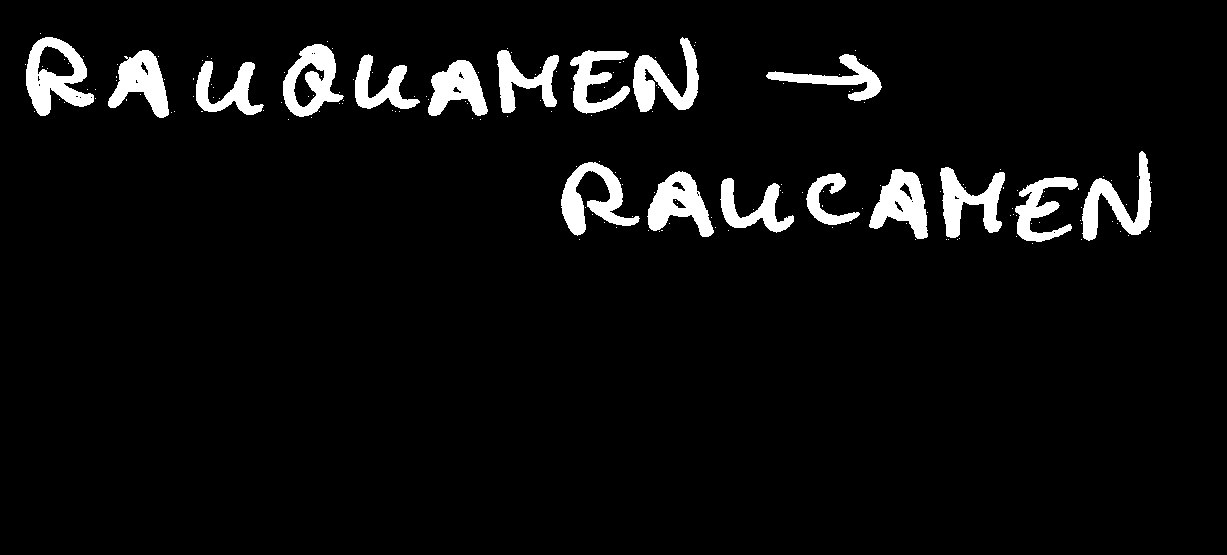 RAUQUAMEN →
RAUCAMEN